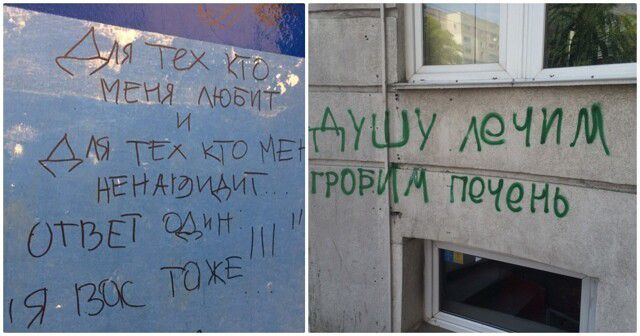 Для тех кто
меня любит
и
Для тех кто мен
ненавидит...
ответ один:
"Я вас тоже"!!!
Душу лечим
гробим печень